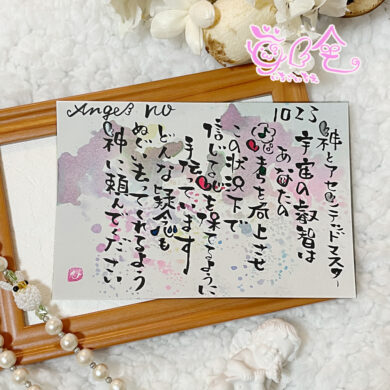 Angel no 1023
神とアセンテッドマスター
宇宙の叡智は
あなたの
思考を向上させ
この状況下で
信じる心を保てるように
手伝っています
どんな疑念も
ぬぐい去ってくれるよう
神に頼んでください